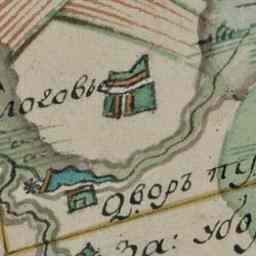 логовье
Дворъ пу
За: убо